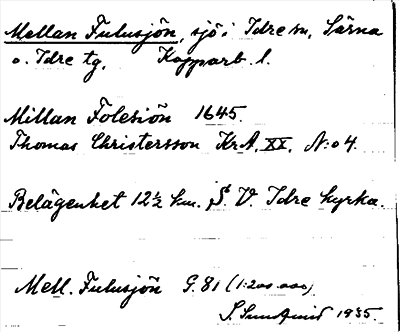 Mellan Fulusjön, sjö i Idre sn, Särna
o. Idre tg, Kopparb. l.
Millan Folesiön 1645.
Thomas Christersson KrA, XX, N:o 4.
Belägenhet 12½ km. S. V Idre kyrka.
Mell. Fulusjön G. 81 (1:200.000)
S. Sundqvist 1935.